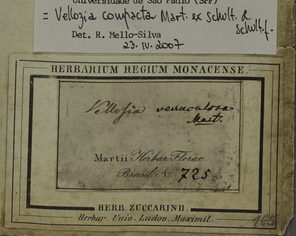 Universidade de São Paulo (SPF)
= Vellozia compacta Mart. ex Schult. & Schult.f.
Det. R. Mello-Silva
23.IV.2007
HERBARIUM REGIUM MONACENSE.
Vellosia
Mart.
Martii Herbar. Florae
Brasil. No. 725
HERB. ZUCCARINII
Herbar. Univ. Ludov. Maximil.